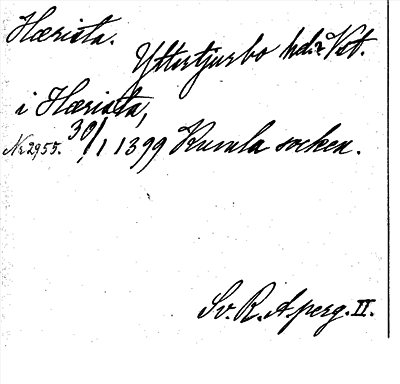 Hærista.
Yttertjurbo hd. Vst.
i Hærista,
Nr 2955. 30/1 1399 Kumla socken.
Sv. R. A. perg. II.